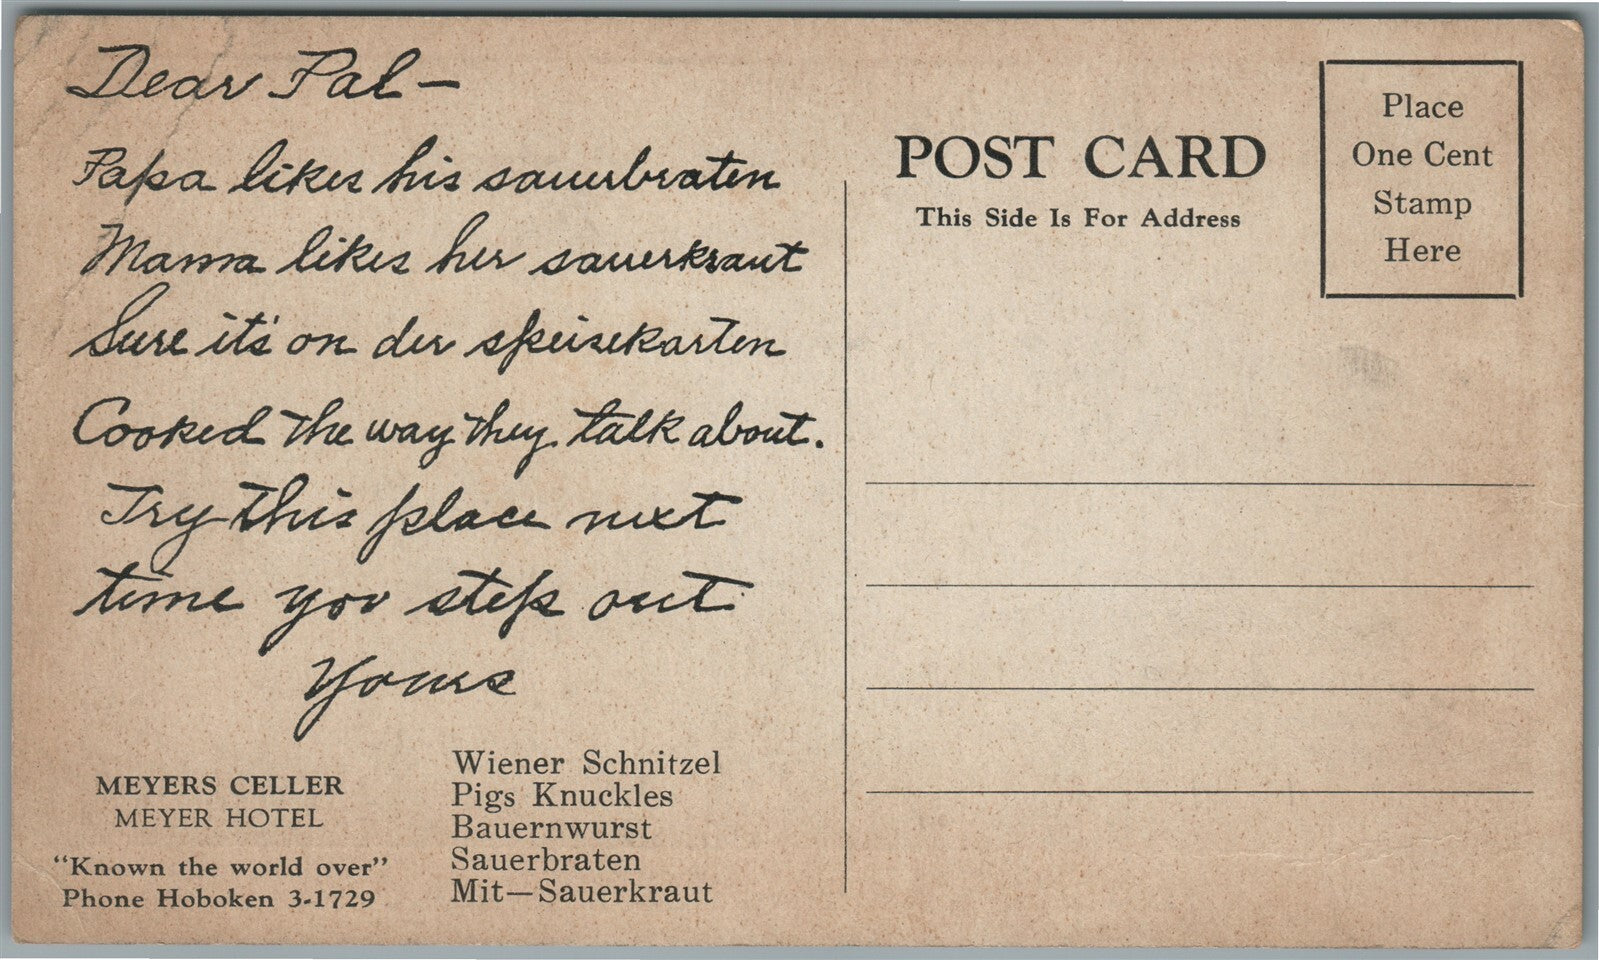 Dear Pal—
Papa likes his sauerbraten
Mama likes her sauerkraut
Sure it's on der speisekarten
Cooked the way they talk about.
Try this place next
time you step out
Yours
MEYERS CELLER
MEYER HOTEL
"Known the world over"
Phone Hoboken 3-1729
Wiener Schnitzel
Pigs Knuckles
Bauernwurst
Sauerbraten
Mit—Sauerkraut
POST CARD
This Side Is For Address
Place
One Cent
Stamp
Here